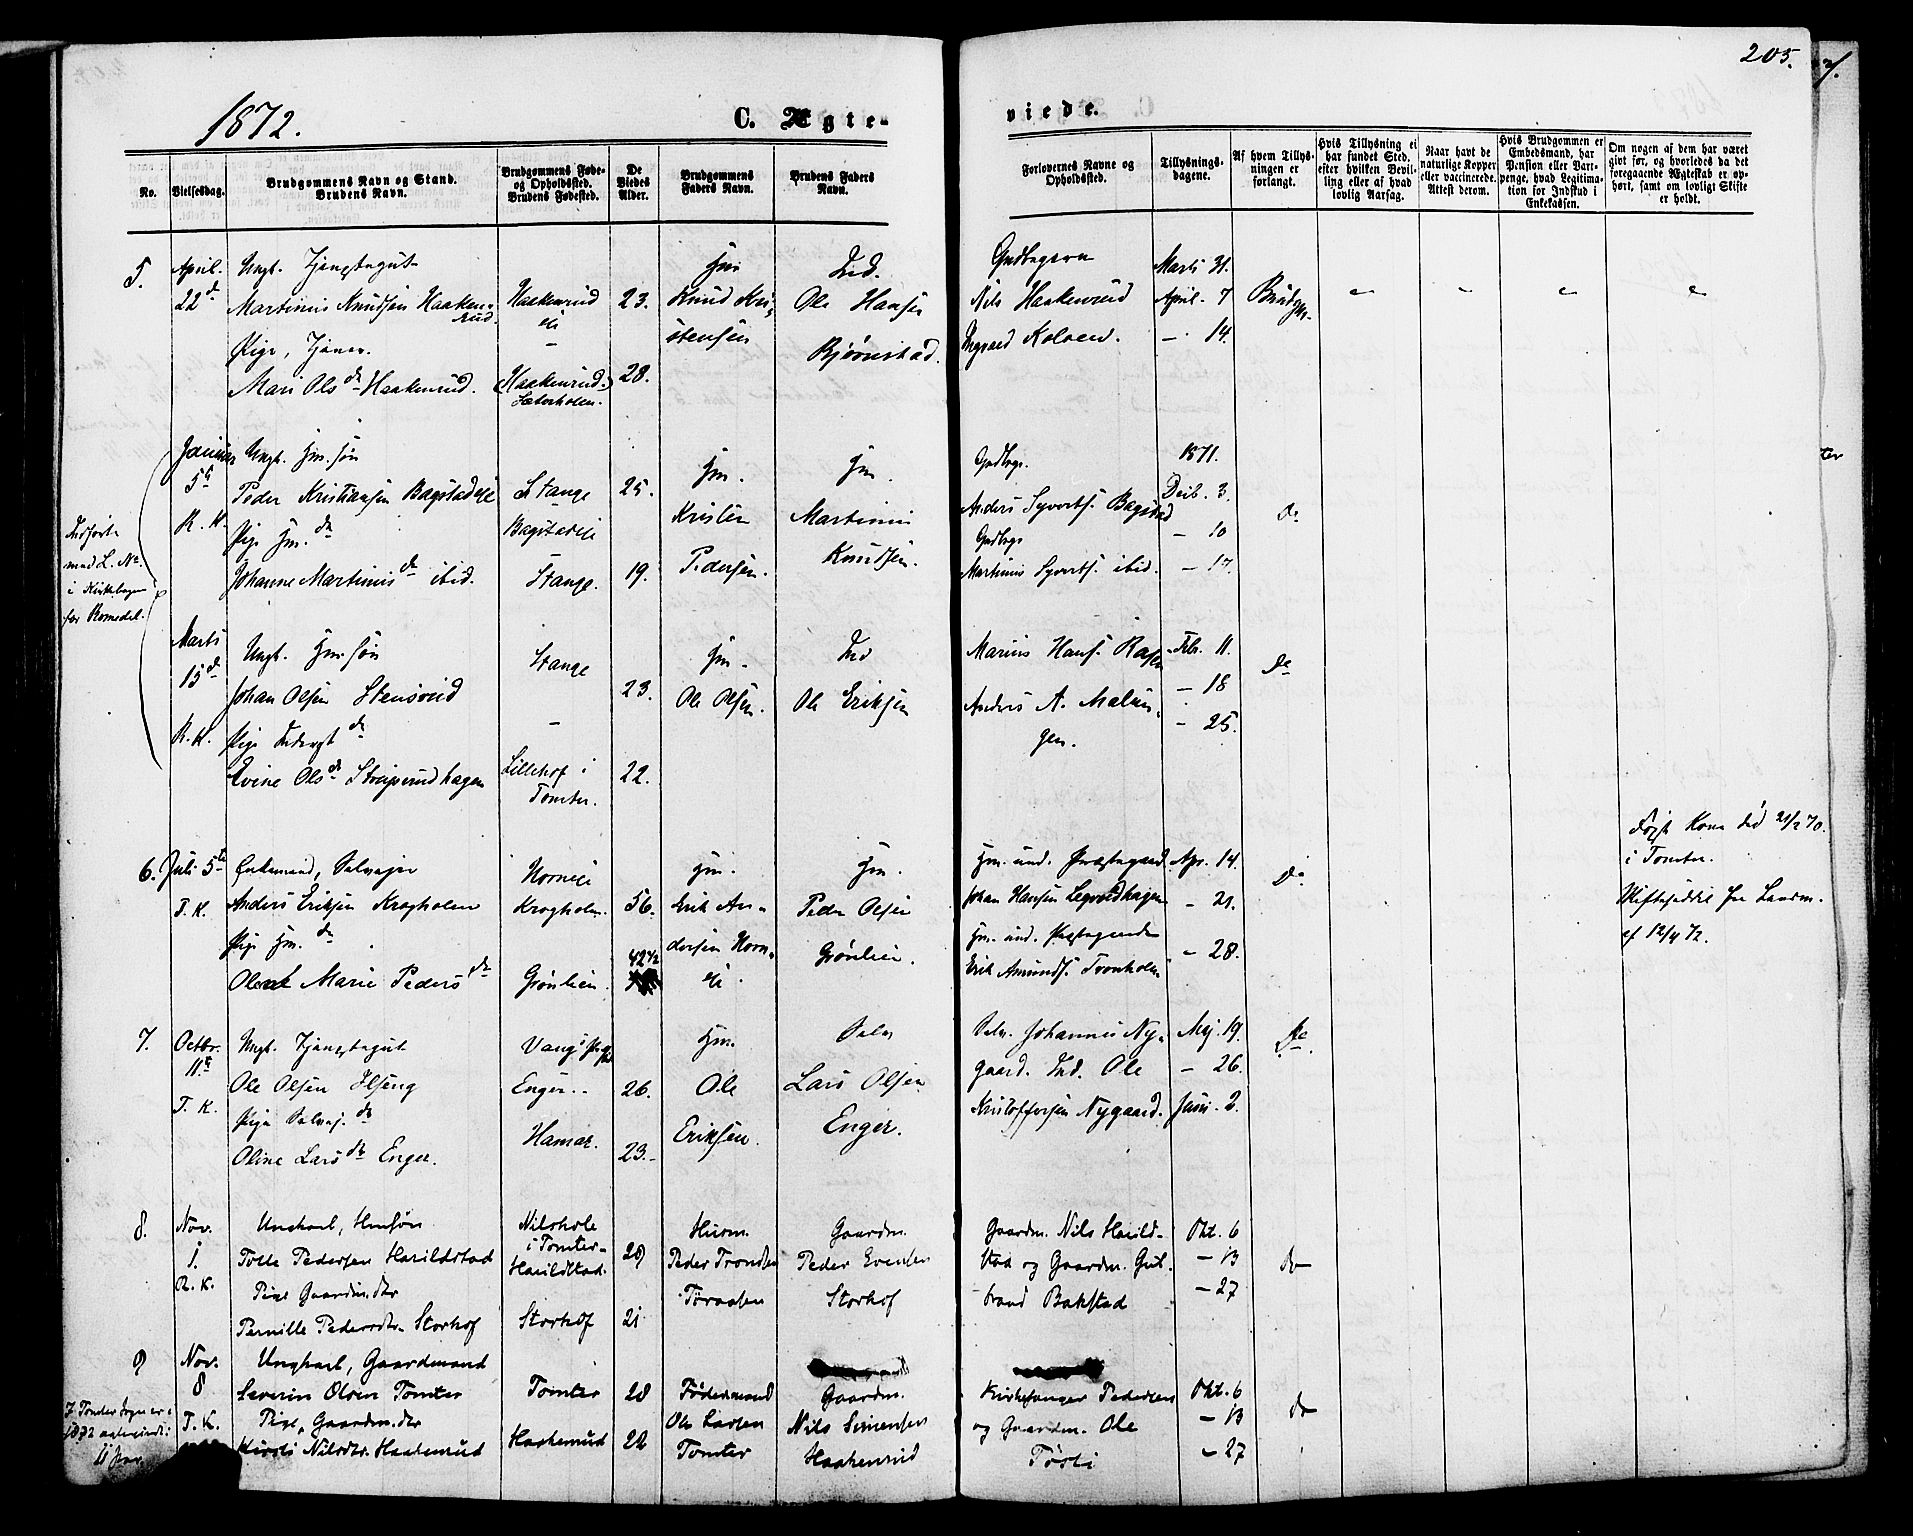 205.
1872.
C. Ægte-
viede.
No.
Vielsesdag.
Brudgommens Navn og Stand.
Brudens Navn.
Brudgommens Føde-
og Opholdssted.
Brudens Fødested.
De
Viedes
Alder.
Brudgommens
Faders Navn.
Brudens Faders
Navn.
Forlovernes Navne og
Opholdssted.
Tillysnings-
dagene.
Af hvem Tillys-
ningen er
forlangt.
Hvis Tillysning ei
har fundet Sted,
efter hvilken Bevil-
ling eller af hvad
lovlig Aarsag.
Naar havt de
naturlige Kopper
eller vaccinerede.
Attest derom.
Hvis Brudgommen er
Embedsmand, har
Pension eller Vart-
penge, hvad Legitima-
tion for Indskud i
Enkekassen.
Om nogen af dem har været
gift før, og hvorledes da det
foregaaende Ægteskab er op-
hørt, samt om lovligt Skifte
er holdt.
5.
April.
22d
Ungk. Tjenestegut
Martinus Knudsen Haaken-
rud.
Pige, Tjener.
Mari Olsdr Haakenrud.
Haakenrud
eie
–
Haakenrud.
Sæterholen.
23.
28.
Hm
Knud Kri-
stensen
Ind.
Ole Hansen
Bjørnstad.
Gaardbrugern
Nils Haakenrud
Kolsen.
Marts 31.
April. 7
– 14.
Brudgm.
Januar
5te
R. K.
Ungk. Hm. søn
Peder Kristiansen Bagstadeie
Pige Hm. dr
Johanne Martinusdr ibid.
Stange
Bagstadeie
Stange.
25.
19.
Hm.
Kristen
Pedersen.
Hm.
Martinus
Knudsen.
Gaardbr.
Anders Syverts. Bagstad
Gaardbr.
Martinus Syverts. ibid.
1871.
Decb. 3.
– 10
– 17.
Do
Indførte
med L. No.
i Kirkebogen
for Romedal.
Marts
15de
R. K.
Ungk. Hm. søn
Johan Olsen Stensrud
Pige Inderst dr
Evine Olsdr Streiprudhagen
Stange
–
Lillehof i
Tomter.
23.
22.
Hm.
Ole Olsen.
Ind
Ole Eriksen
Marius Hans. Rasen
Anders A. Malun-
gen.
Febr. 11.
– 18
– 25.
Do
6.
Juli 5te
T. K.
Enkemand, Selveier
Anders Eriksen Krogholen
Pige Hm. dr
Oleat Marie Pedersdr
Horneie
Krogholen.
Grønlien.
56.
42 1/2
Hm.
Erik An-
dersen Horn-
ei.
Hm.
Peder Olsen
Grønlien.
Hm. und. Præstegaard.
Johan Hansen Legvoldhagen
Hm. und. Præstegaarden
Erik Amunds. Tronholen
Apr. 14.
– 21.
– 28.
Do
Forst Kone død 21/2 70.
i Tomter.
Skifteseddel fra Lensm.
af 12/4 72.
7.
Octbr.
11te
T. K.
Ungk. Tjenestegut
Ole Olsen Ilseng
Pige Selvei. dr
Oline Larsdr Enger.
Vangs Præstegj
Enger.
Hamar.
26.
23.
Hm.
Ole
Eriksen.
Selv
Lars Olsen
Enger.
Selv. Johannes Ny-
gaard. Ind. Ole
Kristoffersen Nygaard.
Mai. 19.
– 26.
Juni. 2.
Do
8.
Nov.
1.
R. K.
Ungkarl, Hmsøn
Tolle Pedersen Harildstad
Pige Gaardm. dtr
Pernille Pedersdtr. Storhof
Nilshole
i Tomter-
Harildstad.
Storhof
29
21
Husm.
Peder Trondsen
Toraasen
Gaardm.
Peder Evensen
Storhof
Gaardm. Nils Harild-
stad og Gaardm. Gut-
brand Bakstad
Okt. 6
– 13
– 27
do
9
Nov.
8
T. K.
Ungkarl, Gaardmand
Severin Olsen Tomter
Pige, Gaardm. dtr
Kirsti Nilsdtr. Haakenrud
Tomter
Haakenrud
28
22
Føderaadsmand
Ole Larsen
Tomter
Gaardm.
Nils Simensen
Haakenrud
Kirkesanger Pedersen
og Gaardm. Ole
Tøsti
Okt. 6
– 13
– 27
do
I Tomter Sogn er i
1872
11 Par